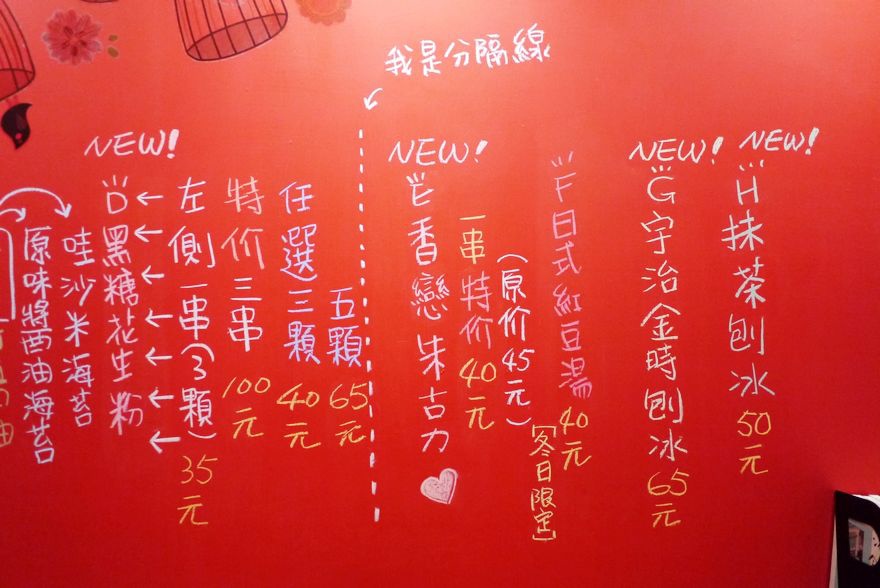 我是分隔線
NEW!
H抹茶刨冰 50元
NEW!
G宇治金時刨冰 65元
F日式紅豆湯 40元
[冬日限定]
NEW!
E香戀朱古力
一串特价40元
(原价45元)
五顆 65元
任選三顆 40元
特价三串 100元
左側一串(3顆) 35元
NEW!
D黑糖花生粉
哇沙米海苔
原味醬西油海苔